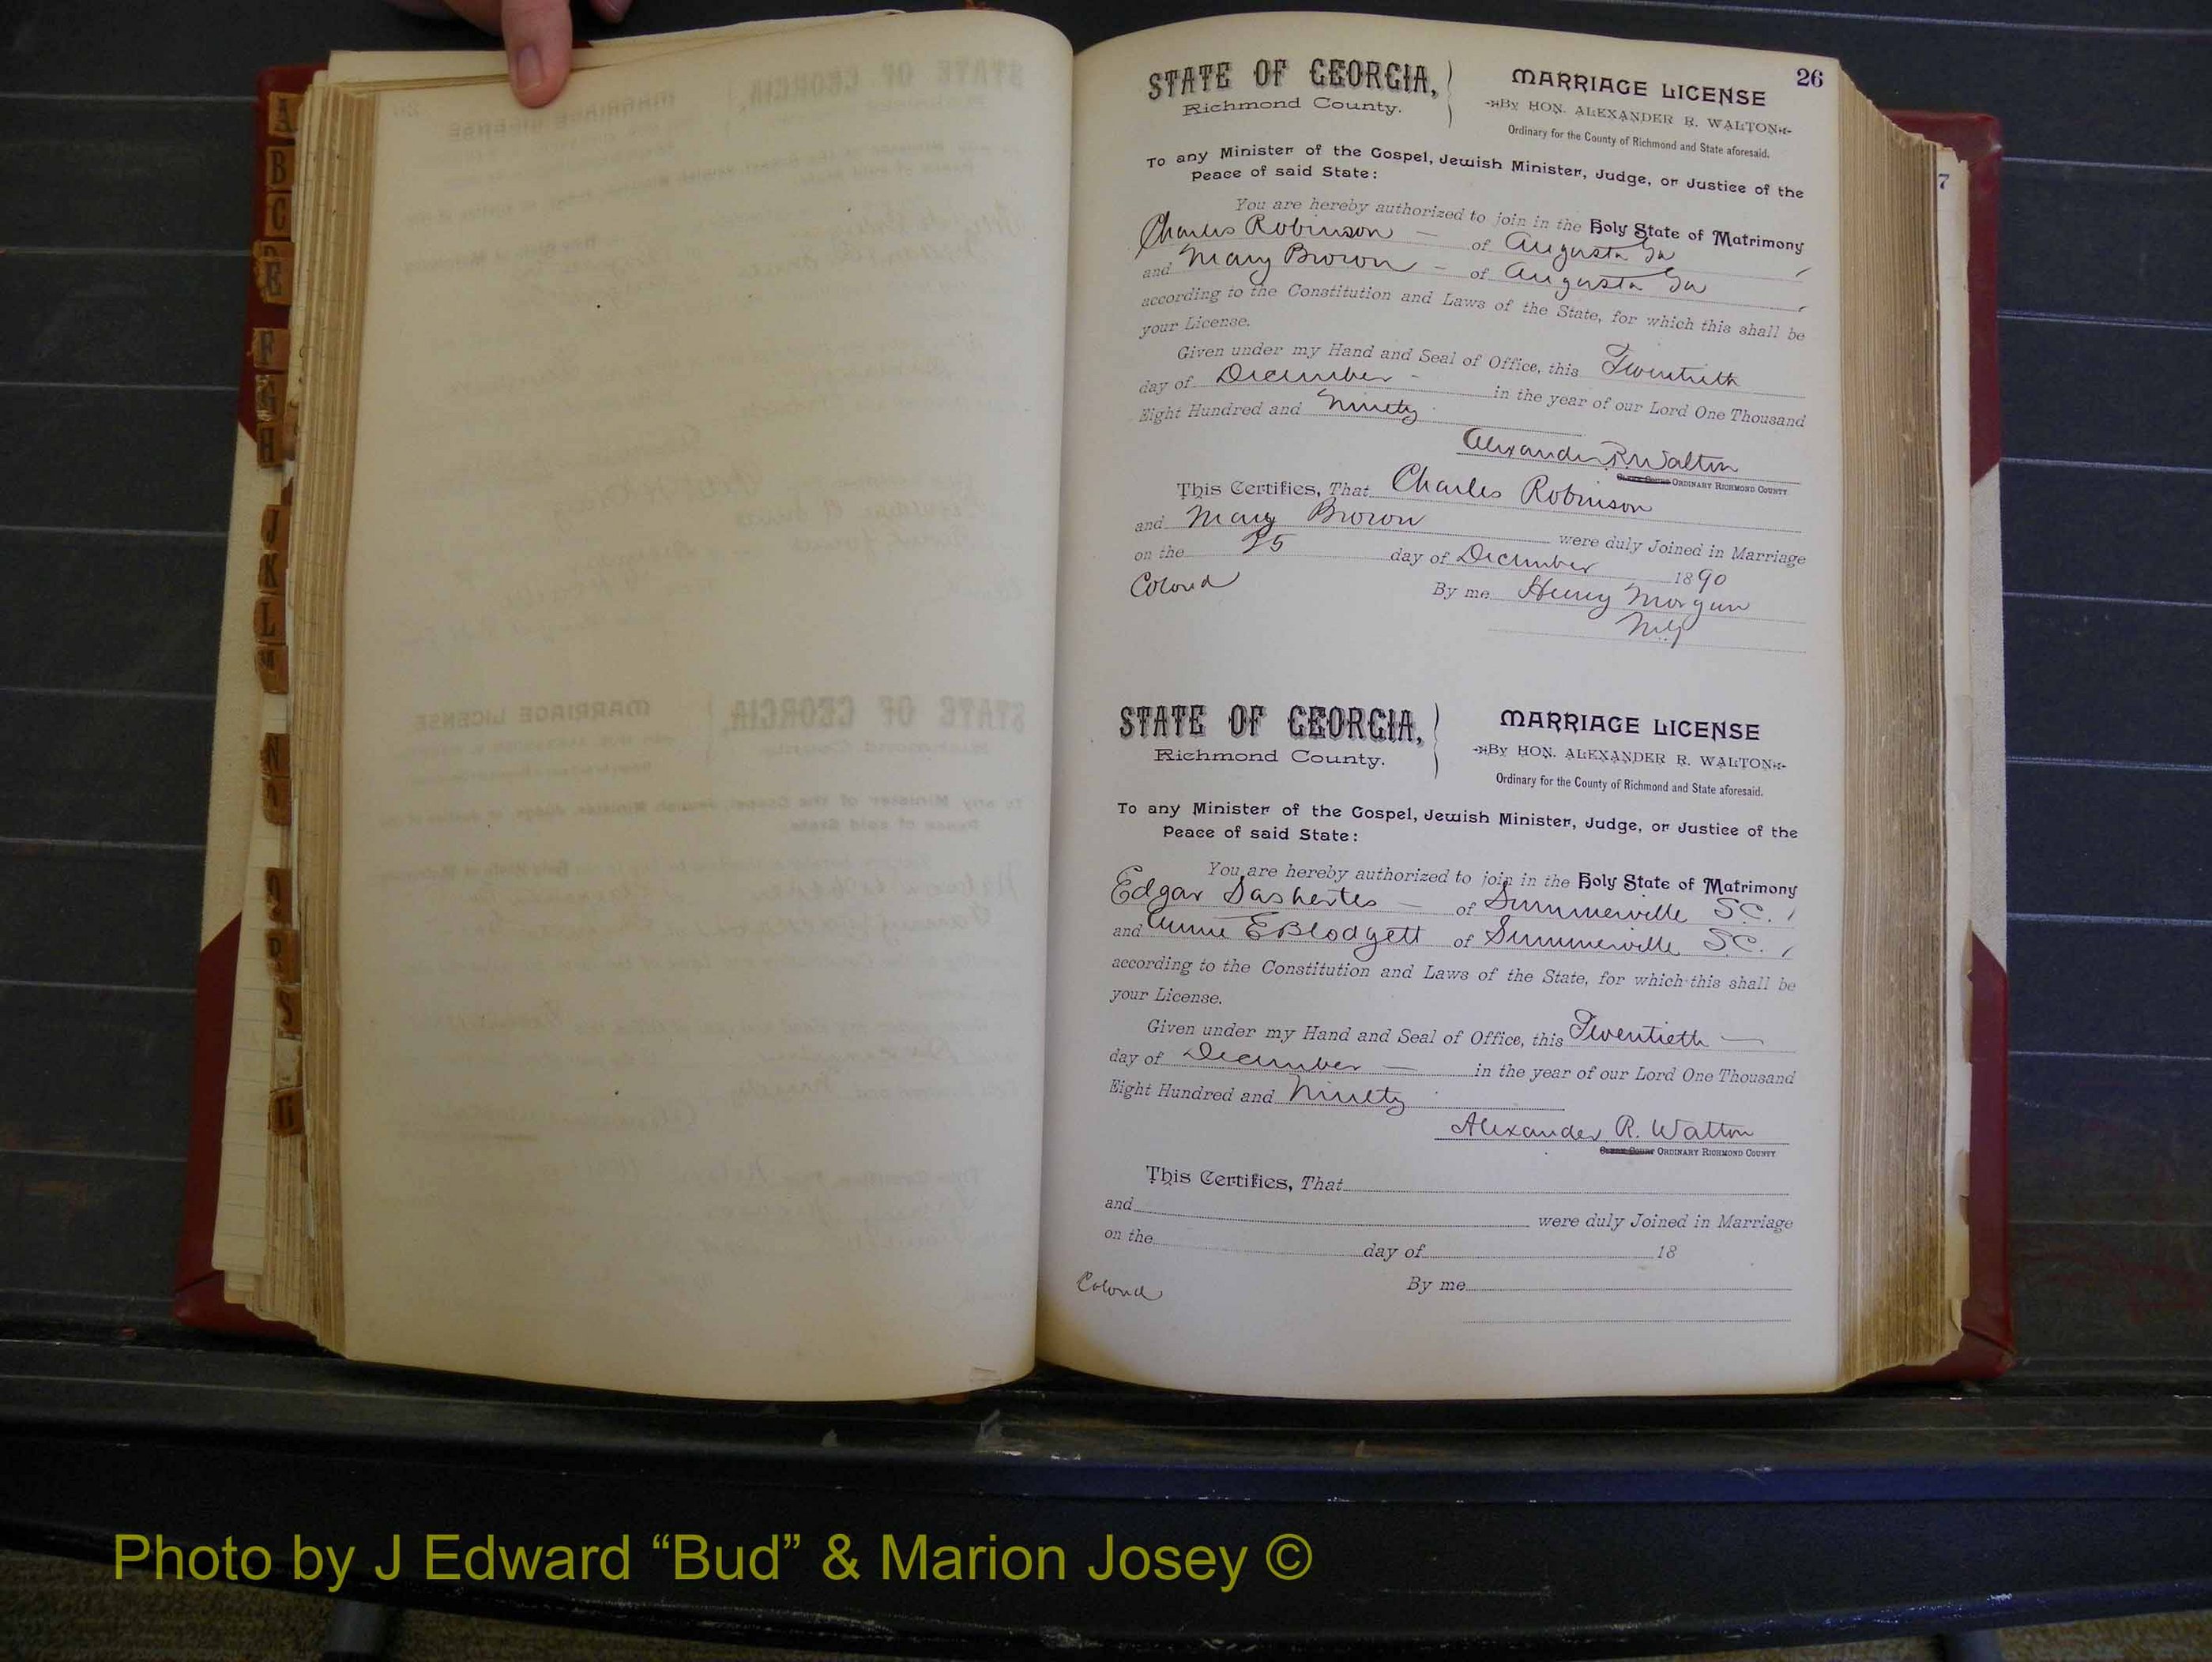 A
B
C
E
F
G
H
J
K
L
M
N
O
R
S
26
7
STATE OF GEORGIA,
Richmond County.
MARRIAGE LICENSE
By HON. ALEXANDER R. WALTON
Ordinary for the County of Richmond and State aforesaid.
To any Minister of the Gospel, Jewish Minister, Judge, or Justice of the
Peace of said State:
You are hereby authorized to join in the Holy State of Matrimony
Charles Robinson — of Augusta Ga
and Mary Brown — of Augusta Ga
according to the Constitution and Laws of the State, for which this shall be
your License.
Given under my Hand and Seal of Office, this Twentieth
day of December - in the year of our Lord One Thousand
Eight Hundred and Ninety
Alexander R. Walton
Clerk Court ORDINARY RICHMOND COUNTY
This Certifies, That Charles Robinson
and Mary Brown were duly Joined in Marriage
on the 25 day of December 1890
Colored By me Henry Morgan
STATE OF GEORGIA,
Richmond County.
MARRIAGE LICENSE
By HON. ALEXANDER R. WALTON
Ordinary for the County of Richmond and State aforesaid.
To any Minister of the Gospel, Jewish Minister, Judge, or Justice of the
Peace of said State:
You are hereby authorized to join in the Holy State of Matrimony
Edgar — of Summerville S.C.
and Annie E Blodgett of Summerville S.C.
according to the Constitution and Laws of the State, for which this shall be
your License.
Given under my Hand and Seal of Office, this Twentieth —
day of December — in the year of our Lord One Thousand
Eight Hundred and Ninety
Alexander R. Walton
Clerk Court ORDINARY RICHMOND COUNTY
This Certifies, That
and were duly Joined in Marriage
on the day of 18
Colored By me
Photo by J Edward “Bud” & Marion Josey ©